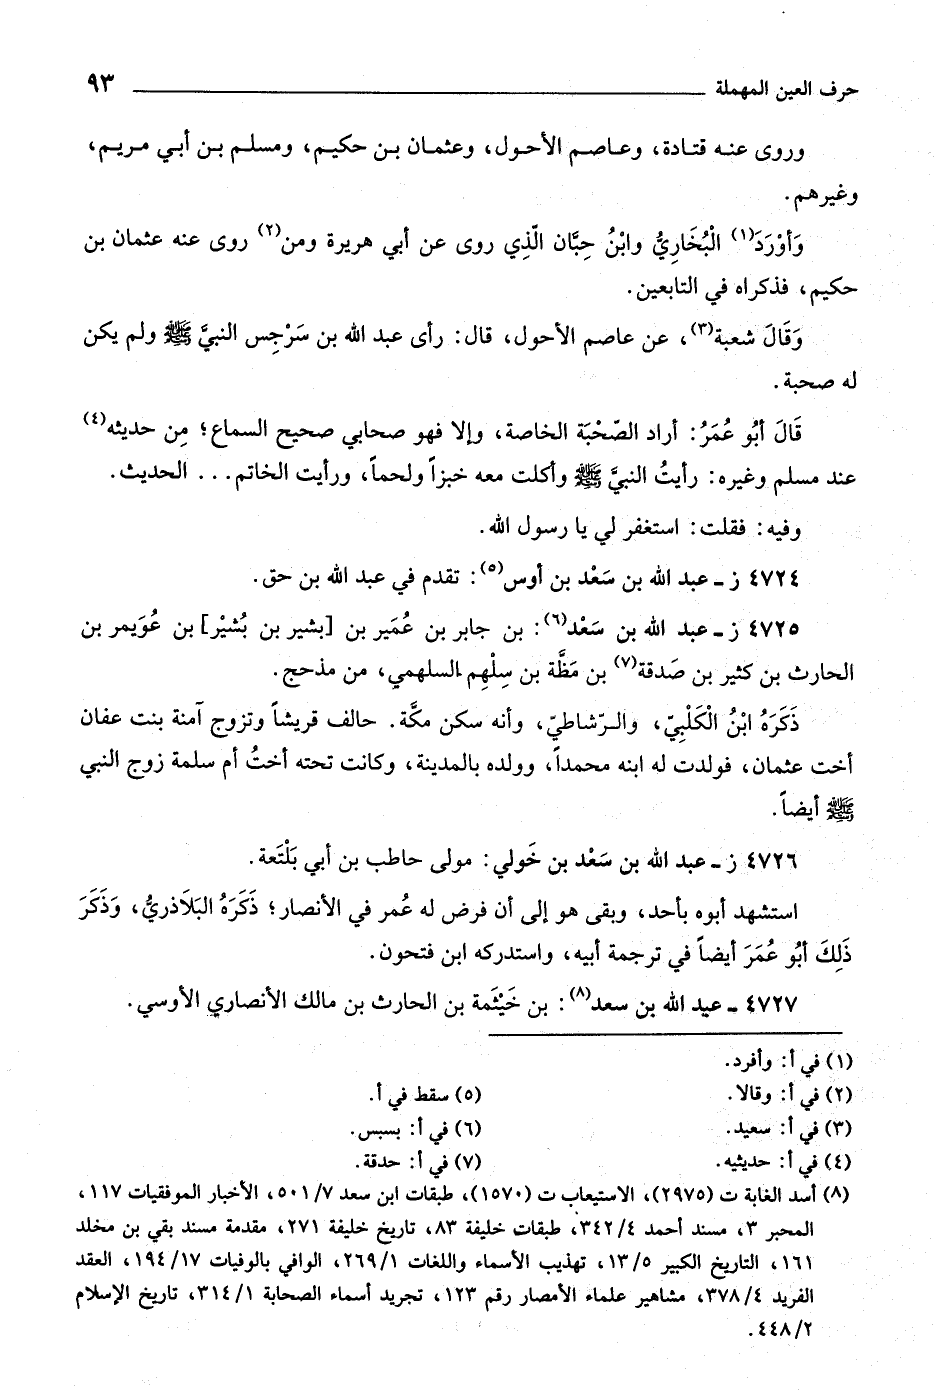 حرف العين المهملة ٩٣
وروى عنه قتادة، وعاصم الأحول، وعثمان بن حكيم، ومسلم بن أبي مريم،
وغيرهم.
وَأوْرَدَ(١) الْبُخَارِيُّ وابْنُ حِبَّان الّذِي روى عن أبي هريرة ومن(٢) روى عنه عثمان بن
حكيم، فذكراه في التابعين.
وَقَالَ شعبة(٣)، عن عاصم الأحول، قال: رأى عبد الله بن سَرْجِس النبيَّ ﷺ ولم يكن
له صحبة.
قَالَ أبُو عُمَرُ: أراد الصّحْبَة الخاصة، وإلا فهو صحابي صحيح السماع؛ مِن حديثه(٤)
عند مسلم وغيره: رأيتُ النبيَّ ﷺ وأكلت معه خبزاً ولحماً، ورأيت الخاتم... الحديث.
وفيه: فقلت: استغفر لي يا رسول الله.
٤٧٢٤ ز ـ عبد الله بن سَعْد بن أوس(٥): تقدم في عبد الله بن حق.
٤٧٢٥ ز ـ عبد الله بن سَعْد(٦): بن جابر بن عُمَير بن [بشير بن بُشيْر] بن عُوَيمر بن
الحارث بن كثير بن صَدقة(٧) بن مَظَّة بن سِلْهِم السلهمي، من مذحج.
ذَكَرَهُ ابْنُ الْكَلْبِيّ، والرّشاطيّ، وأنه سكن مكَّة. حالف قريشاً وتزوج آمنة بنت عفان
أخت عثمان، فولدت له ابنه محمداً، وولده بالمدينة، وكانت تحته أختُ أم سلمة زوج النبي
ﷺ أيضاً.
٤٧٢٦ ز ـ عبد الله بن سَعْد بن خَولي: مولى حاطب بن أبي بَلْتَعة.
استشهد أبوه بأحد، وبقى هو إلى أن فرض له عُمر في الأنصار؛ ذَكَرَهُ البَلَاذريُّ، وَذَكَرَ
ذَلِكَ أبُو عُمَرَ أيضاً في ترجمة أبيه، واستدركه ابن فتحون.
٤٧٢٧ ـ عبد الله بن سعد(٨): بن خَيْثَمة بن الحارث بن مالك الأنصاري الأوسي.
(١) في أ: وأفرد.
(٢) في أ: وقالا.
(٣) في أ: سعيد.
(٤) في أ: حديثيه.
(٥) سقط في أ.
(٦) في أ: بسبس.
(٧) في أ: حدقة.
(٨) أسد الغابة ت (٢٩٧٥)، الاستيعاب ت (١٥٧٠)، طبقات ابن سعد ٥٠١/٧، الأخبار الموفقيات ١١٧،
المحبر ٣، مسند أحمد ٣٤٢/٤، طبقات خليفة ٨٣، تاريخ خليفة ٢٧١، مقدمة مسند بقي بن مخلد
١٦١، التاريخ الكبير ١٣/٥، تهذيب الأسماء واللغات ٢٦٩/١، الوافي بالوفيات ١٩٤/١٧، العقد
الفريد ٣٧٨/٤، مشاهير علماء الأمصار رقم ١٢٣، تجريد أسماء الصحابة ٣١٤/١، تاريخ الإسلام
٤٤٨/٢.